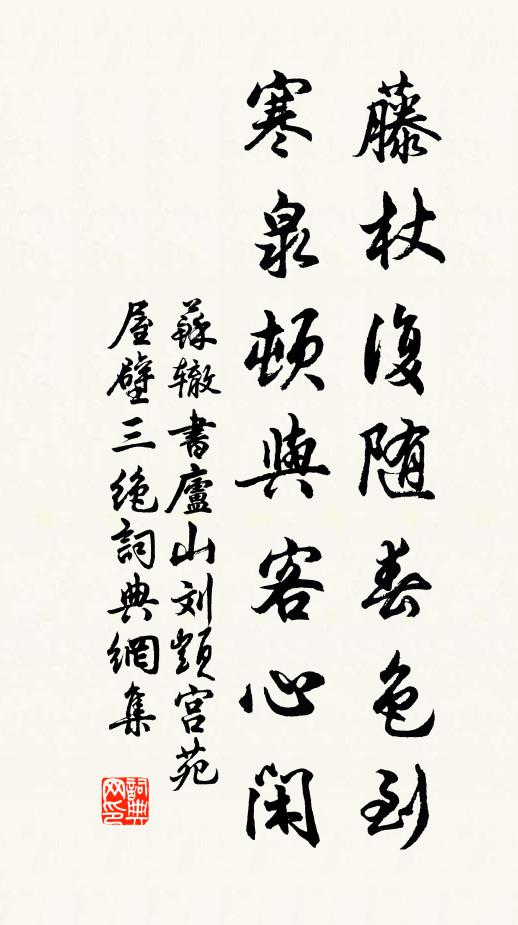 藤杖復隨春色到
寒泉頓與客心閑
蘇轍書廬山刘顗宫苑
屋壁三绝詞典網集
詞典网印